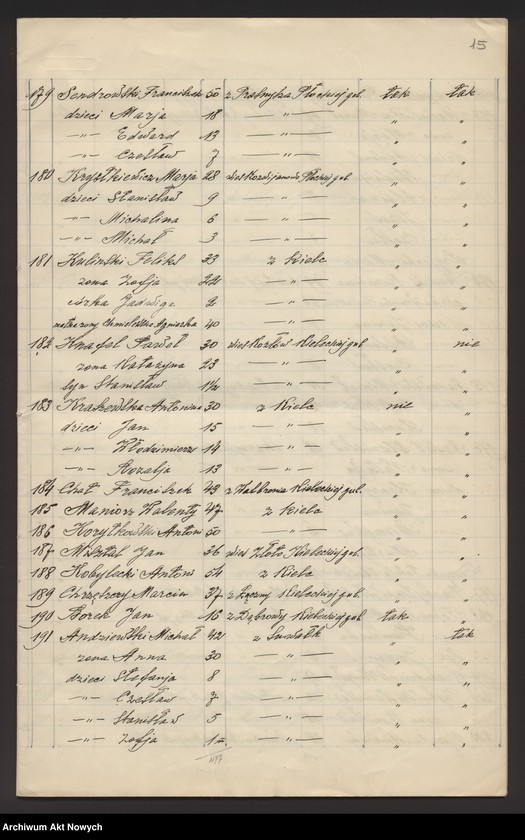 15
179 Sendrowski Franciszek 50 z Płockiej gub. tak tak
dzieci Marja 18 —„— „ „
—„— Edward 13 —„— „ „
—„— Czesław 7 —„— „ „
180 Krysztkiewicz Marja 28 wieś Płockiej gub. „ „
dzieci Stanisław 9 —„— „ „
—„— Michalina 6 —„— „ „
—„— Michał 3 —„— „ „
181 Kuliński Feliks 33 z Kielc „ „
żona Zofja 22 —„— „ „
córka Jadwiga 2 —„— „ „
Chmielewska Agnieszka 40 —„— „ „
182 Knafel Paweł 30 wieś Kozłów Kieleckiej gub. „ nie
żona Katarzyna 23 —„— „ „
syn Stanisław 1½ —„— „ „
183 Kraszewska Antonina 30 z Kielc nie „
dzieci Jan 15 —„— „ „
—„— Włodzimierz 14 —„— „ „
—„— Rozalja 13 —„— „ „
184 Chat Franciszek 43 z Wolbroma Kieleckiej gub. „ „
185 Maniorz Walenty 47 z Kielc „ „
186 Korytkowski Antoni 50 —„— „ „
187 Misztal Jan 36 wieś Złota Kieleckiej gub. „ „
188 Kobylecki Antoni 54 z Kielc „ „
189 Chrzęszczy Marcin 37 z Kieleckiej gub. „ „
190 Borek Jan 16 z Dąbrowy Kieleckiej gub. tak „
191 Andziewski Michał 42 z Suwałk „ tak
żona Anna 30 —„— „ „
dzieci Stefanja 8 —„— „ „
—„— Czesław 7 —„— „ „
—„— Stanisław 5 —„— „ „
—„— Zofja 1 —„— „ „
Archiwum Akt Nowych